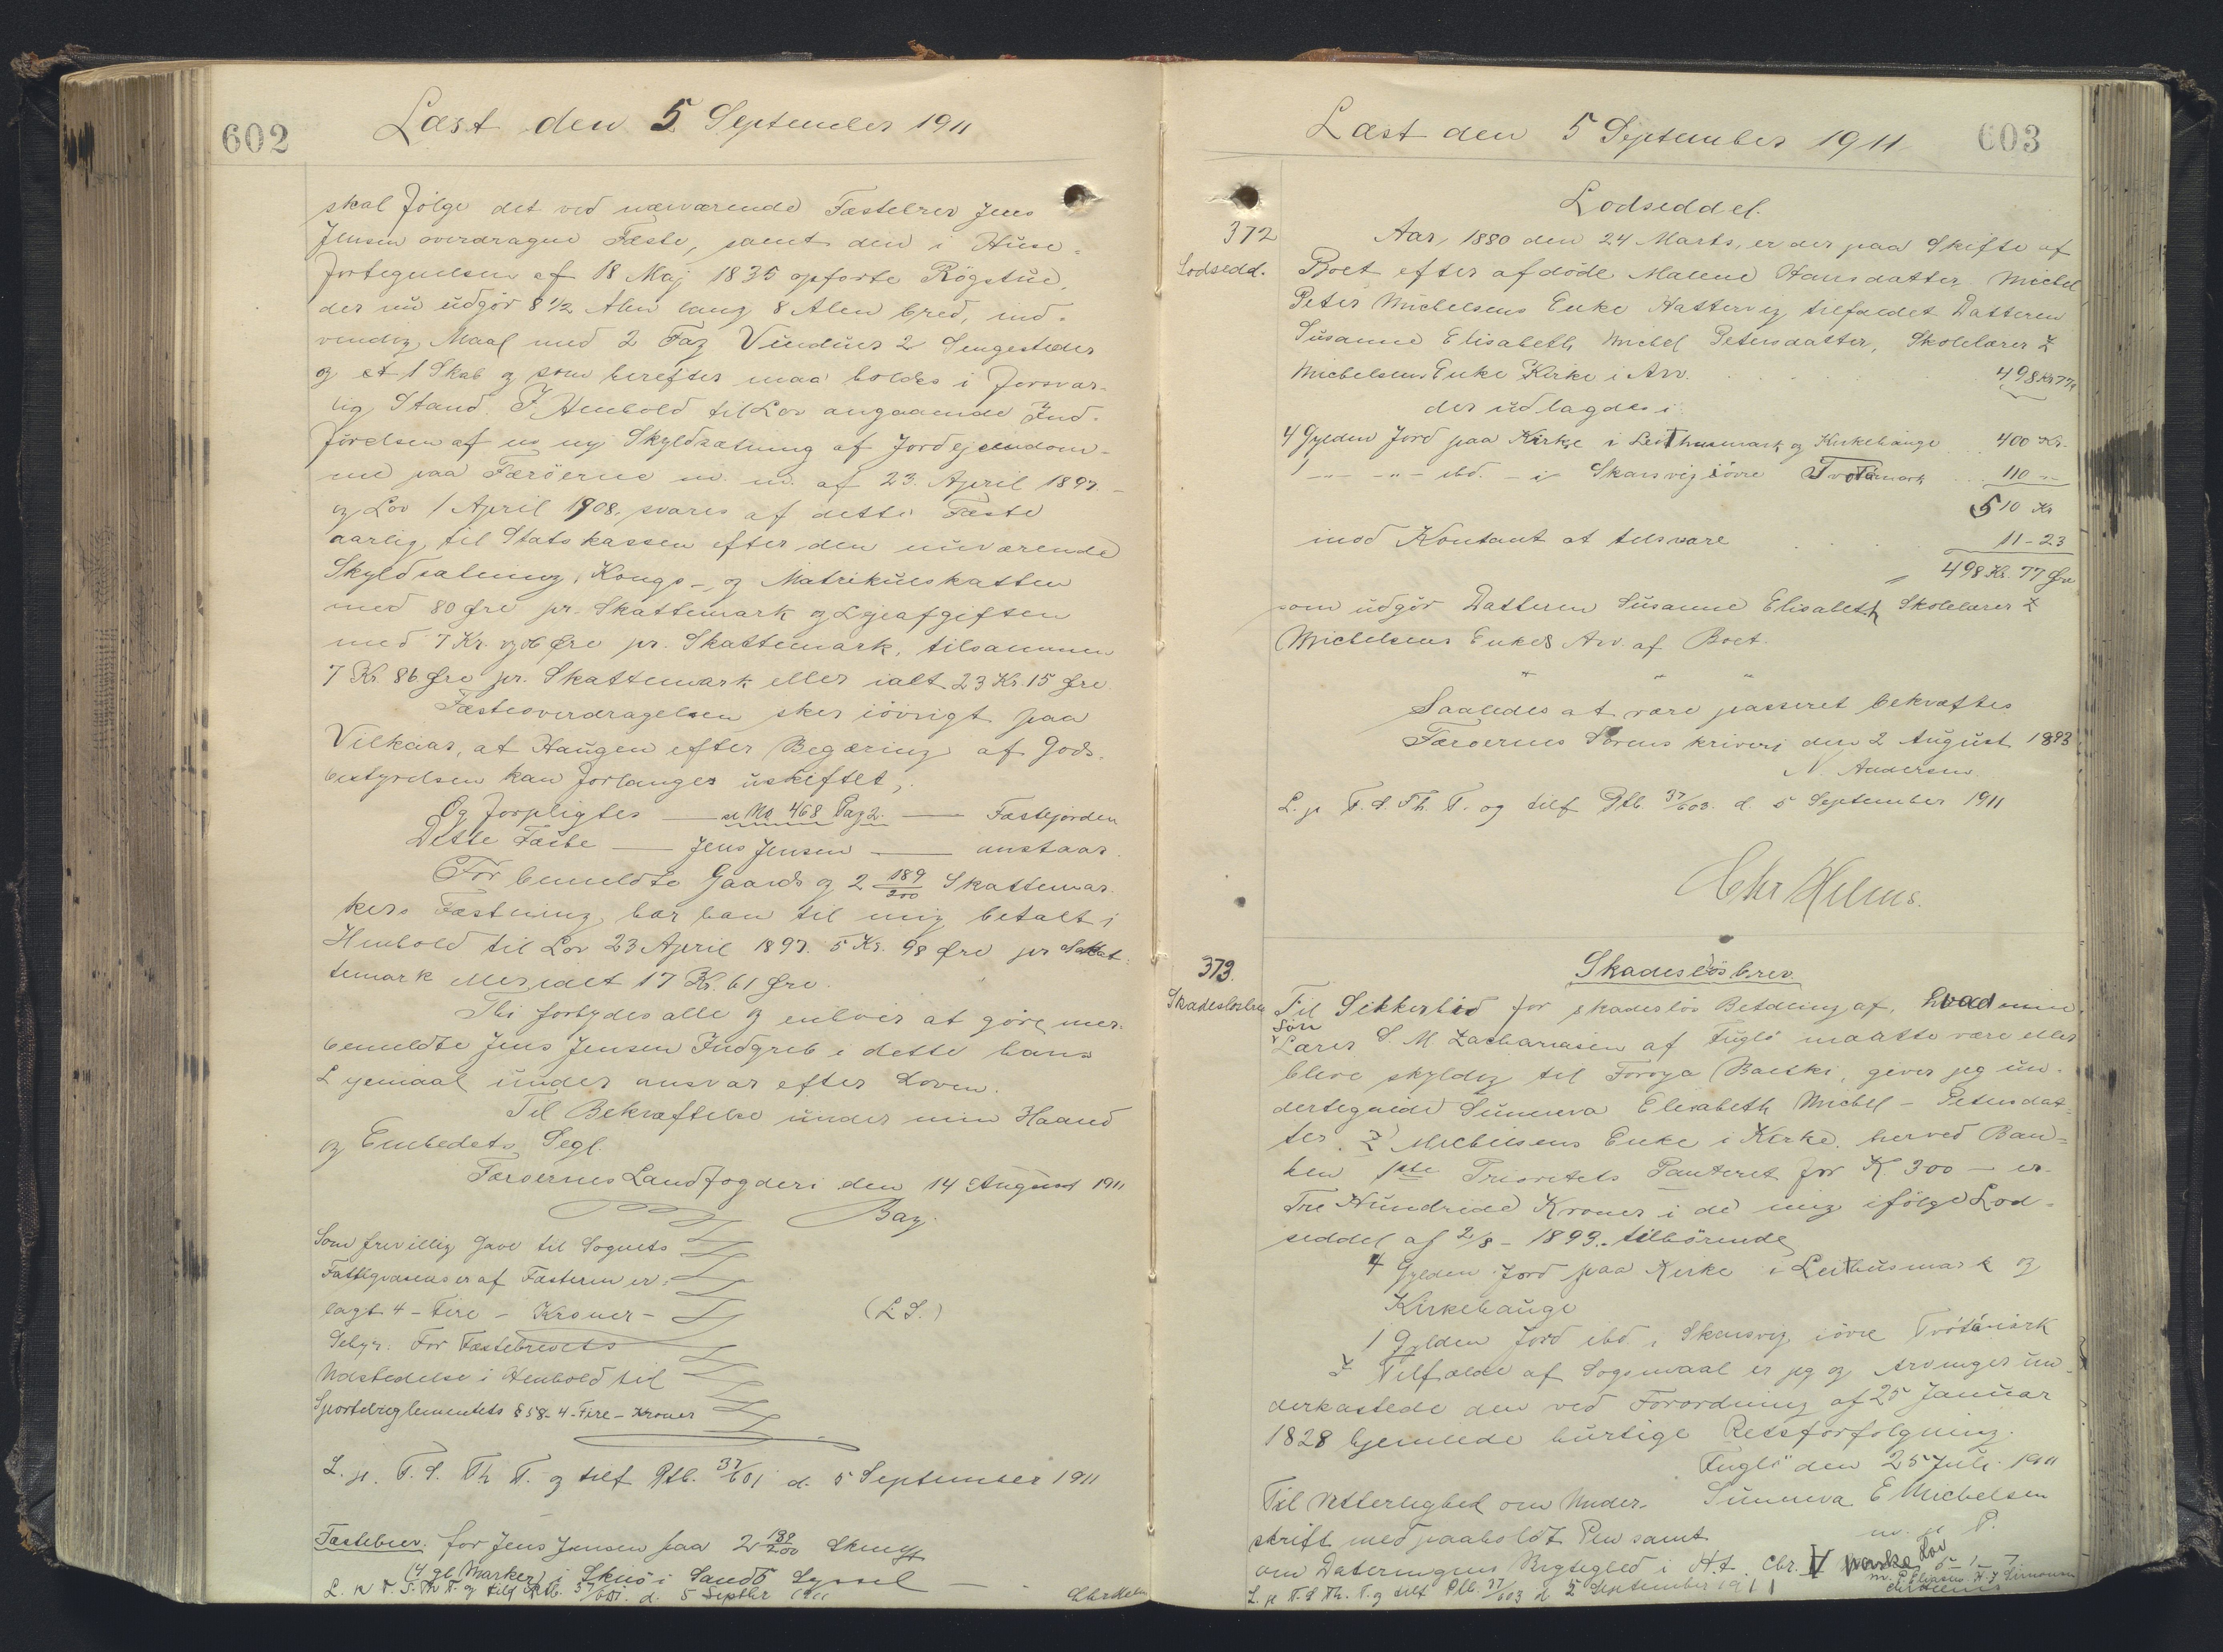 602
Læst den 5 September 1911
skal følge det ved nærværende Fæstebrev Jens
Jensen overdragne Fæste, samt den i Huse-
fortegnelsen af 18 Maj 1835 opførte Røgstue,
der nu udgør 8 1/2 Alen lang 8 Alen bred, ind-
vendig Maal med 2 Fag Vinduer 2 Sengesteder
og et 1 Skab og som herefter maa holdes i forsvar-
lig Stand. I Henhold til Lov angaaende Ind-
førelsen af en ny Skyldsætning af Jordejendom-
me paa Færöerne m. m. af 23. April 1897 -
og Lov 1 April 1908, svares af dette Fæste
aarlig til Statskassen efter den nuværende
Skyldsætning, Kongs- og Matrikulskatten
med 80 Øre pr. Skattemark og Lejeafgiften
med 7 Kr. og 6 Øre pr. Skattemark, tilsammen
7 Kr. 86 Øre pr. Skattemark eller ialt 23 Kr. 15 Øre.
Fæsteoverdragelsen sker iövrigt paa
Vilkaar, at Haugen efter Begæring af Gods-
bestyrelsen kan forlanges uskiftet,
Og forpligtes — se No 468 Pag 2. — Fæstejorden
Dette Fæste — Jens Jensen — anstaar.
For bemeldte Gaards og 2 189/200 Skattemar-
kers Fæstning har han til mig betalt i
Henhold til Lov 23 April 1897. 5 Kr. 98 Øre pr Skat-
temark eller ialt 17 Kr. 61 Øre.
Thi forbydes alle og enhver at göre mer-
bemeldte Jens Jensen Indgreb i dette hans
Lejemaal under ansvar efter Loven.
Til Bekræftelse under min Haand
og Embedets Segl.
Færoernes Landfogderi den 14 August 1911
Bay.
Som frivillig Gave til Sognets
Fattigvæsens er af Fæsteren er-
lagt 4 - Fire - Kroner -
(L.S.)
Gebyr: For Fæstebrevets
Udstedelse i Henhold til
Sportelreglementets § 58 - 4 - Fire - Kroner
L. p. F. S. Th. F. og tilf Ptb. 37/601 d. 5 September 1911
Fæstebrev. for Jens Jensen paa 2 189/200 Skmgk
(4 gl Marker) i Skuö i Sandö Syssel —
L. p F. S. Th F. og tilf Ptb. 37/601. d. 5 Septbr 1911
Læst den 5 September 1911
603
Lodseddel.
372
Lodsedd.
Aar, 1880 den 24 Marts, er der paa Skifte af
Boet efter afdöde Malene Hansdatter Michel
Peter Michelsens Enke Hattervig tilfaldet Datteren
Susanne Elisabeth Michel Petersdatter, Skolelærer Z
Michelsens Enke Kirke i Arv. 498 Kr 77
der udlagdes i
4 Gylden Jord paa Kirke i Leithusmark og Kirkehauge 400 Kr.
1 -"- -"- ibd. - i Skarsvig iövre Tvotamark 110 -"-
510 Kr
mod Kontant at tilsvare 11 - 23
" 498 Kr. 77 Øre
som udgör Datteren Susanne Elisabeth Skolelærer Z
Michelsens Enkes Arv af Boet.
" " "
Saaledes at være passeret bekræftes
Færoernes Sorenskriveri den 2 August 1893
N. Andersen
L. p F. S. Th. F. og tilf Ptb. 37/603. d. 5 September 1911
Chr Helms.
373.
Skadeslosbrev
Skadeslösbrev
Til Sikkerhed for skadeslös Betaling af, hvad min
Sön
Lærer S. M. Zachariasen af Fuglö maatte være eller
blive skyldig til Foroya Banki, giver jeg un-
dertegnede Sunneva Elisabeth Michel - Petersdat-
ter. Z Michelsens Enke i Kirke. herved Ban-
ken 1ste Prioritets Panteret for K 300 — er
Tre Hundrede Kroner i de mig ifölge Lod-
seddel af 2/8 - 1893. tilhörende
4 Gylden Jord paa Kirke i Leithusmark og
Kirkehauge
1 Gylden Jord ibd. i Skarsvig iövre Tvotamark
I Tilfælde af Sogsmaal er jeg og Arvinger un-
derkastede den ved Forordning af 25 Januar
1828 hjemlede hurtige Retsforfolgning.
Fuglö den 25 Juli 1911
Til Vitterlighed om Under- Sunneva E Michelsen
skrift med paaholdt Pen samt m. p. P.
om Dateringens Rigtighed i H.t. Chr. V norske Lov 5 - 1 - 7
L. p F. S Th. F. og tilf Ptb. 37/603 d 5 September 1911